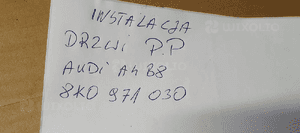 INSTALACJA
DRZWI P.P
AUDI A4 B8
8K0 971 030